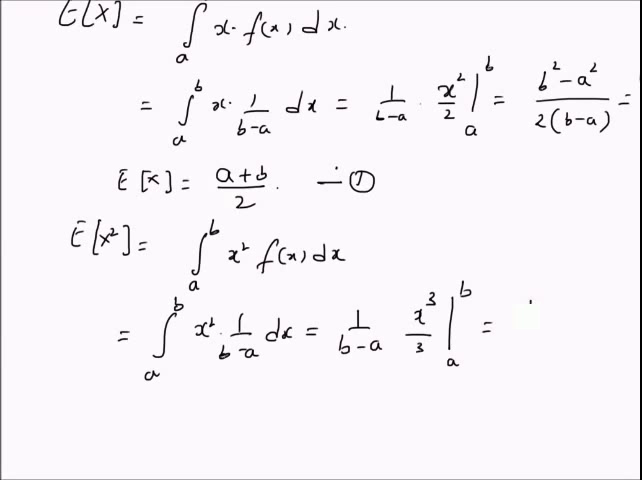 E[X] = ∫ₐ x. f(x) dx.
= ∫ₐᵇ x. 1/(b-a) dx = 1/(b-a) . x²/2 |ₐᵇ = (b²-a²)/(2(b-a)) =
E[X] = (a+b)/2. — ①
E[X²] = ∫ₐᵇ x² f(x) dx
= ∫ₐᵇ x². 1/(b-a) dx = 1/(b-a) x³/3 |ₐᵇ =